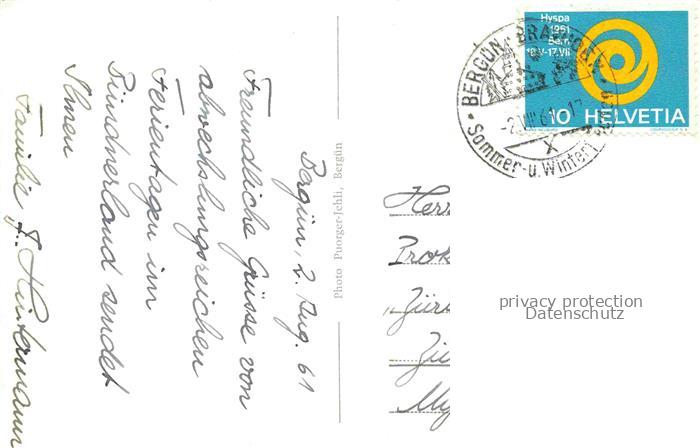 Bergün, 2. Aug. 61
Freundliche Grüsse von
abwechslungsreichen
Ferientagen im
Bündnerland sendet
Ihnen
Familie J. Hintermann
Photo Puorger-Jehli, Bergün
Hyspa
1961
Bern
18.V-17.VII
10 HELVETIA
BERGÜN BRAVUOGN
Sommer- u. Winter
Herr
Prok
Zür
Zü
privacy protection
Datenschutz